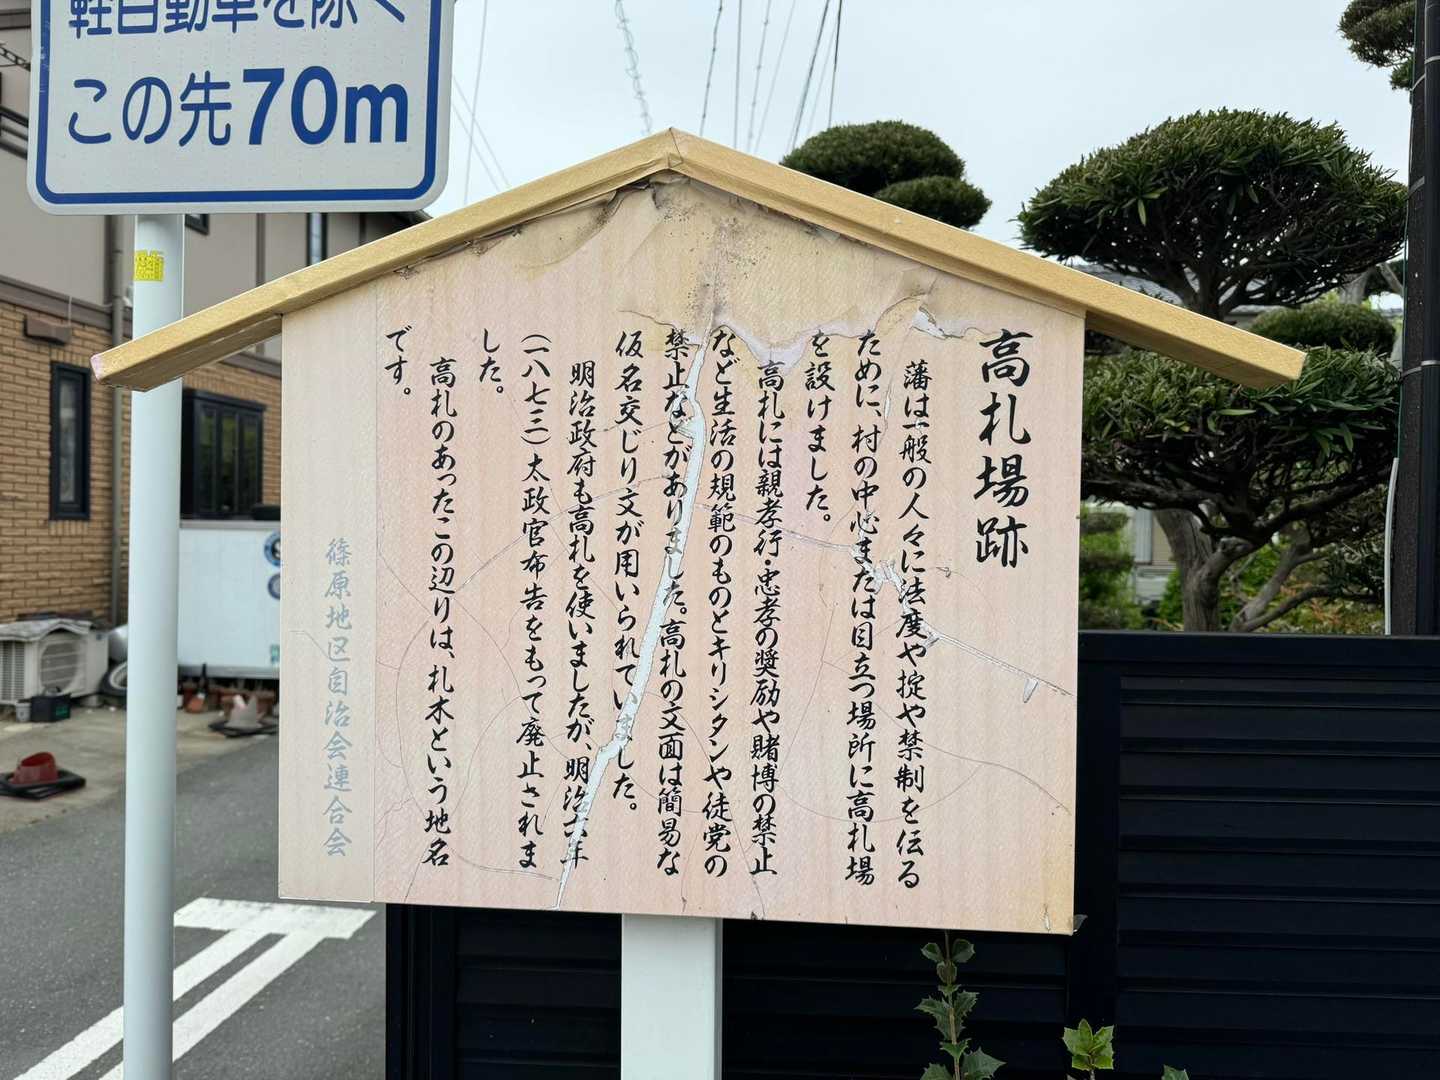 軽自動車を除く
この先70m
高札場跡
藩は一般の人々に法度や掟や禁制を伝る
ために、村の中心または目立つ場所に高札場
を設けました。
高札には親孝行・忠孝の奨励や賭博の禁止
など生活の規範のものとキリシタンや徒党の
禁止などがありました。高札の文面は簡易な
仮名交じり文が用いられていました。
明治政府も高札を使いましたが、明治六年
(一八七三)太政官布告をもって廃止されま
した。
高札のあったこの辺りは、札木という地名
です。
篠原地区自治会連合会